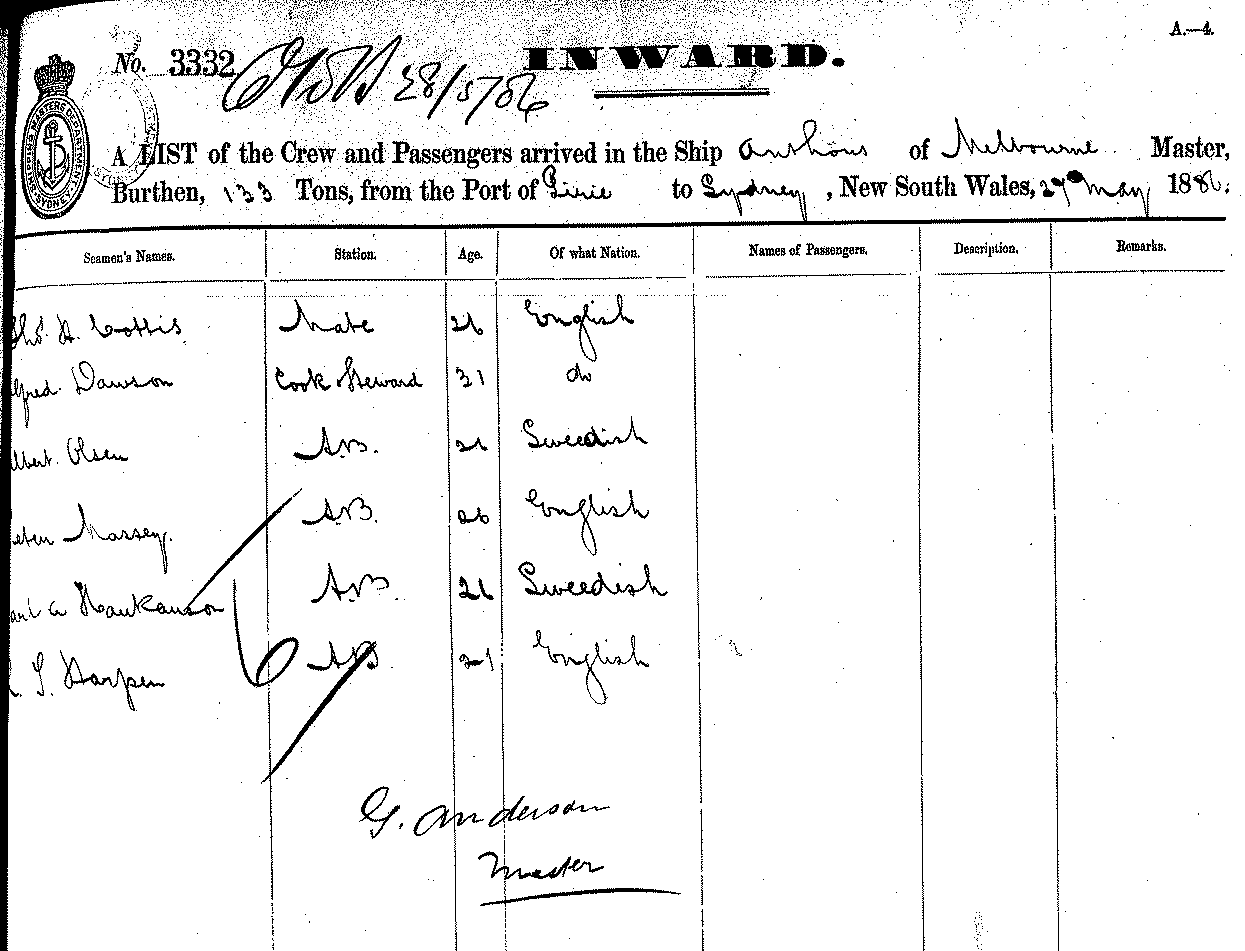 A.—4.
No. 3332 28/5/86 INWARD.
A LIST of the Crew and Passengers arrived in the Ship of Melbourne Master,
Burthen, 133 Tons, from the Port of Pirie to Sydney, New South Wales, 27th May 1886.
Seamen's Names. Station. Age. Of what Nation. Names of Passengers. Description. Remarks.
Thos. H. Cottis Mate 26 English
lfred Dawson Cook Steward 31 do
lbert Olsen A.B. 26 Sweedish
eter Massey. A.B. 26 English
a Haukauson A.B. 26 Sweedish
S. Harpen A.B. 21 English
6
G. Anderson
Master